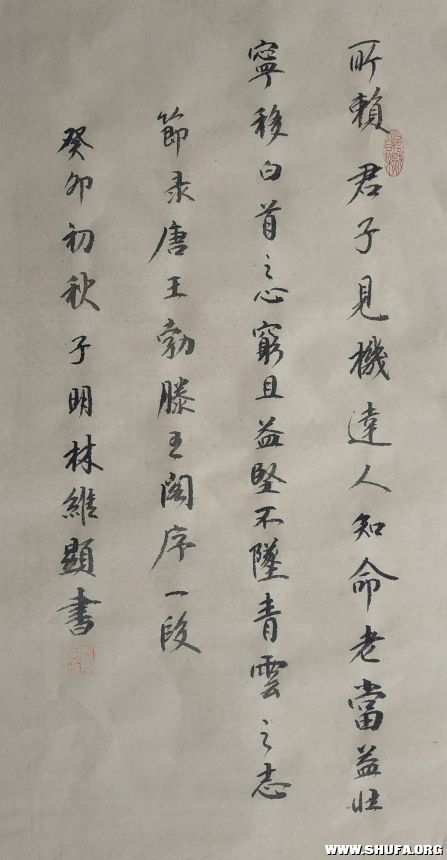 所赖君子見機達人知命老當益壯
寧移白首之心窮且益堅不墜青雲之志
節录唐王勃滕王阁序一段
癸卯初秋子明林維顯書
WWW.SHUFA.ORG